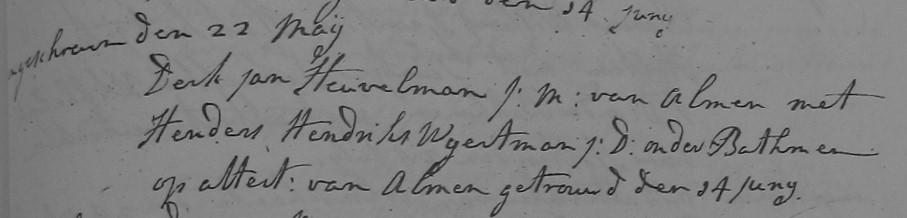 den 14 Juny
ngeschreven den 22 Maÿ
Derk Jan Heuvelman J: M: van Almen met
Henders Hendriks Wgertman J: D: onder Bathmen
op attest: van Almen getrouwd den 14 Juny.